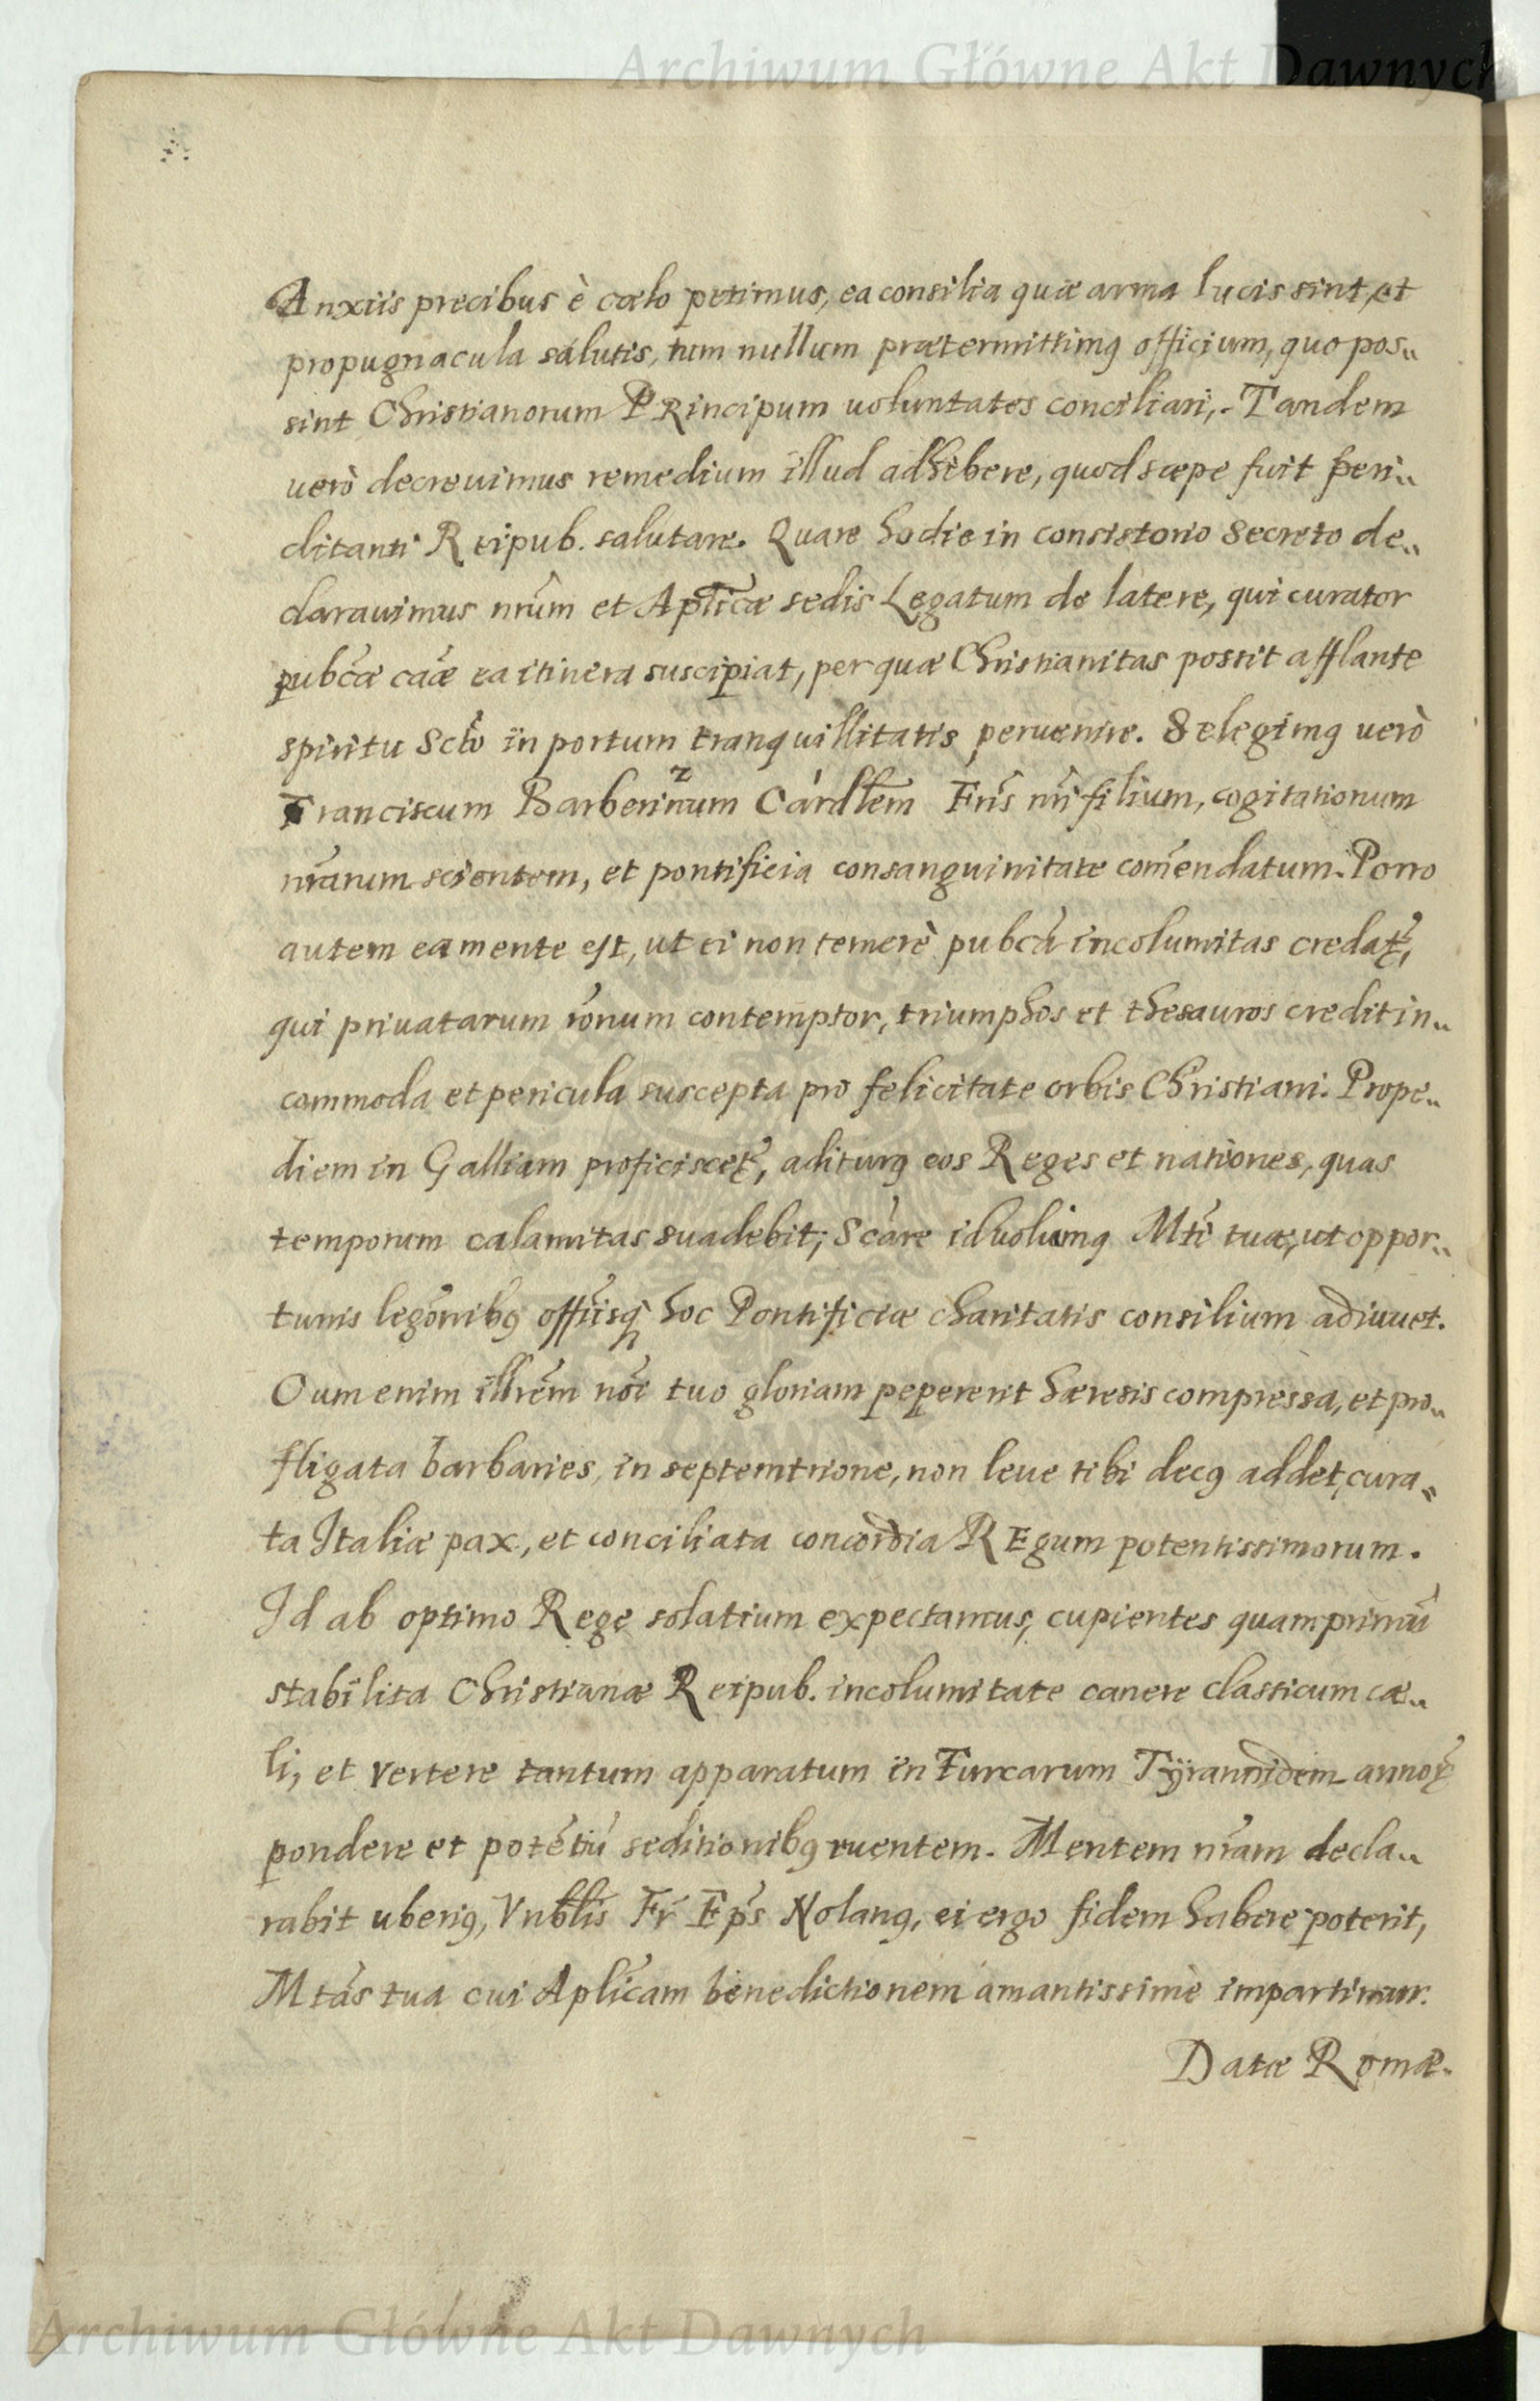 Archiwum Główne Akt Dawnych
Anxiis precibus è cœlo petimus, ea consilia quæ arma lucis sint, et
propugnacula salutis, tum nullum prætermittimꝰ officium, quo pos„
sint Christianorum PRincipum uoluntates conciliari,. Tandem
uerò decreuimus remedium illud adhibere, quod sæpe fuit peri„
clitanti Reipub. salutare. Quare hodie in consistorio secreto de„
clarauimus nrũm et Aplicæ sedis Legatum de latere, qui curator
pubcæ caæ ea itinera suscipiat, per quæ Christianitas possit afflante
spiritu Scto in portum tranquillitatis peruenire. Selegimꝰ uerò
Franciscum Barberinum Cardlem Fris nri filium, cogitationum
nrarum scientem, et pontificia consanguinitate comendatum. Porro
autem ea mente est, ut ei non temerè pubca incolumitas credatꝭ,
qui priuatarum ronum contemptor, triumphos et thesauros credit in„
commoda et pericula suscepta pro felicitate orbis Christiani. Prope„
diem in Galliam proficiscetꝭ, aditurꝰ eos Reges et nationes, quas
temporum calamitas suadebit; Scare id uoluimꝰ Mti tuæ, ut oppor„
tunis legonibꝰ offiisqꝫ hoc Pontificiæ charitatis consilium adiuuet.
Cum enim illrem noi tuo gloriam pepererit hæresis compressa, et pro„
fligata barbaries, in septemtrione, non leue tibi decꝰ addet, cura„
ta Italiæ pax, et conciliata concordia REgum potentissimorum.
Id ab optimo Rege solatium expectamus, cupientes quamprimũ
stabilita Christianæ Reipub. incolumitate canere classicum cæ„
li, et vertere tantum apparatum in Turcarum Tÿrannidem annoꝝ
pondere et potẽtiũ seditionibꝰ ruentem. Mentem nram decla„
rabit uberiꝰ, Vnblis Fr Eps Nolanꝰ, ei ergo fidem habere poterit,
Mtas tua cui Aplicam benedictionem amantissimè impartimur.
Datæ Romæ.
Archiwum Główne Akt Dawnych